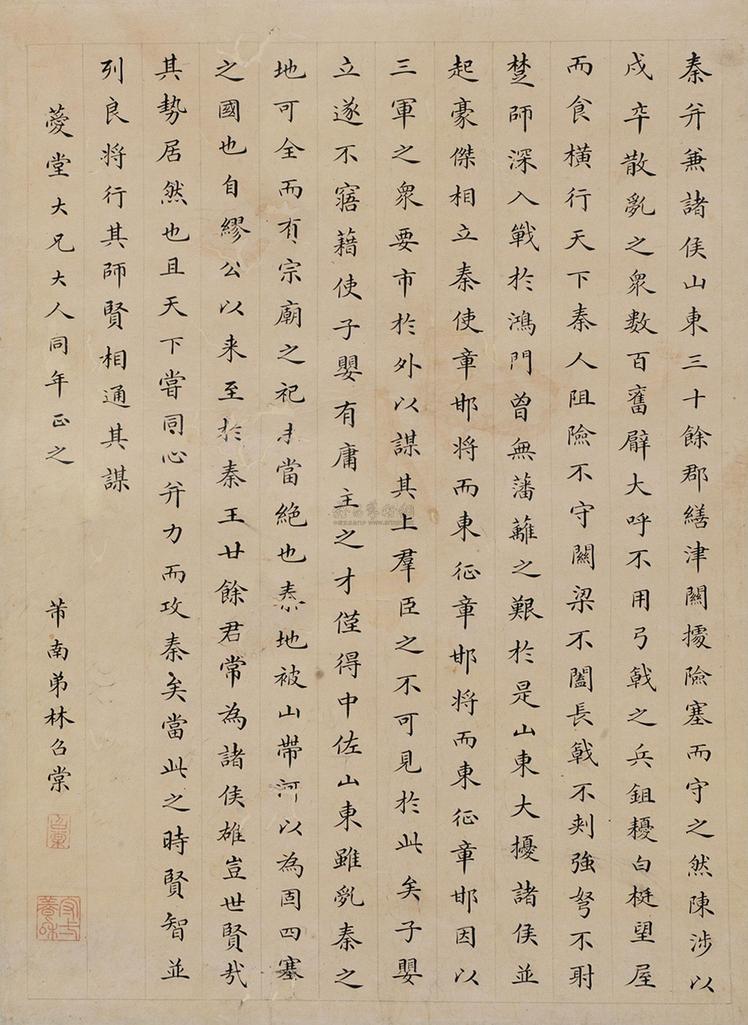 秦并兼諸侯山東三十餘郡繕津關據險塞而守之然陳涉以
戍卒散亂之衆数百奮臂大呼不用弓戟之兵鉏耰白梃望屋
而食橫行天下秦人阻險不守關梁不闔長戟不刺強弩不射
楚師深入戰於鴻門曾無藩蘺之艱於是山東大擾諸侯並
起豪傑相立秦使章邯将而東征章邯将而東征章邯因以
三軍之衆要市於外以謀其上羣臣之不可見於此矣子嬰
立遂不寤藉使子嬰有庸主之才僅得中佐山東雖亂秦之
地可全而有宗廟之祀未當絶也秦地被山帶河以為固四塞
之國也自繆公以来至於秦王廿餘君常為諸侯雄豈世賢哉
其勢居然也且天下嘗同心并力而攻秦矣當此之時賢智並
列良将行其師賢相通其謀
薆堂大兄大人同年正之
芾南弟林召棠